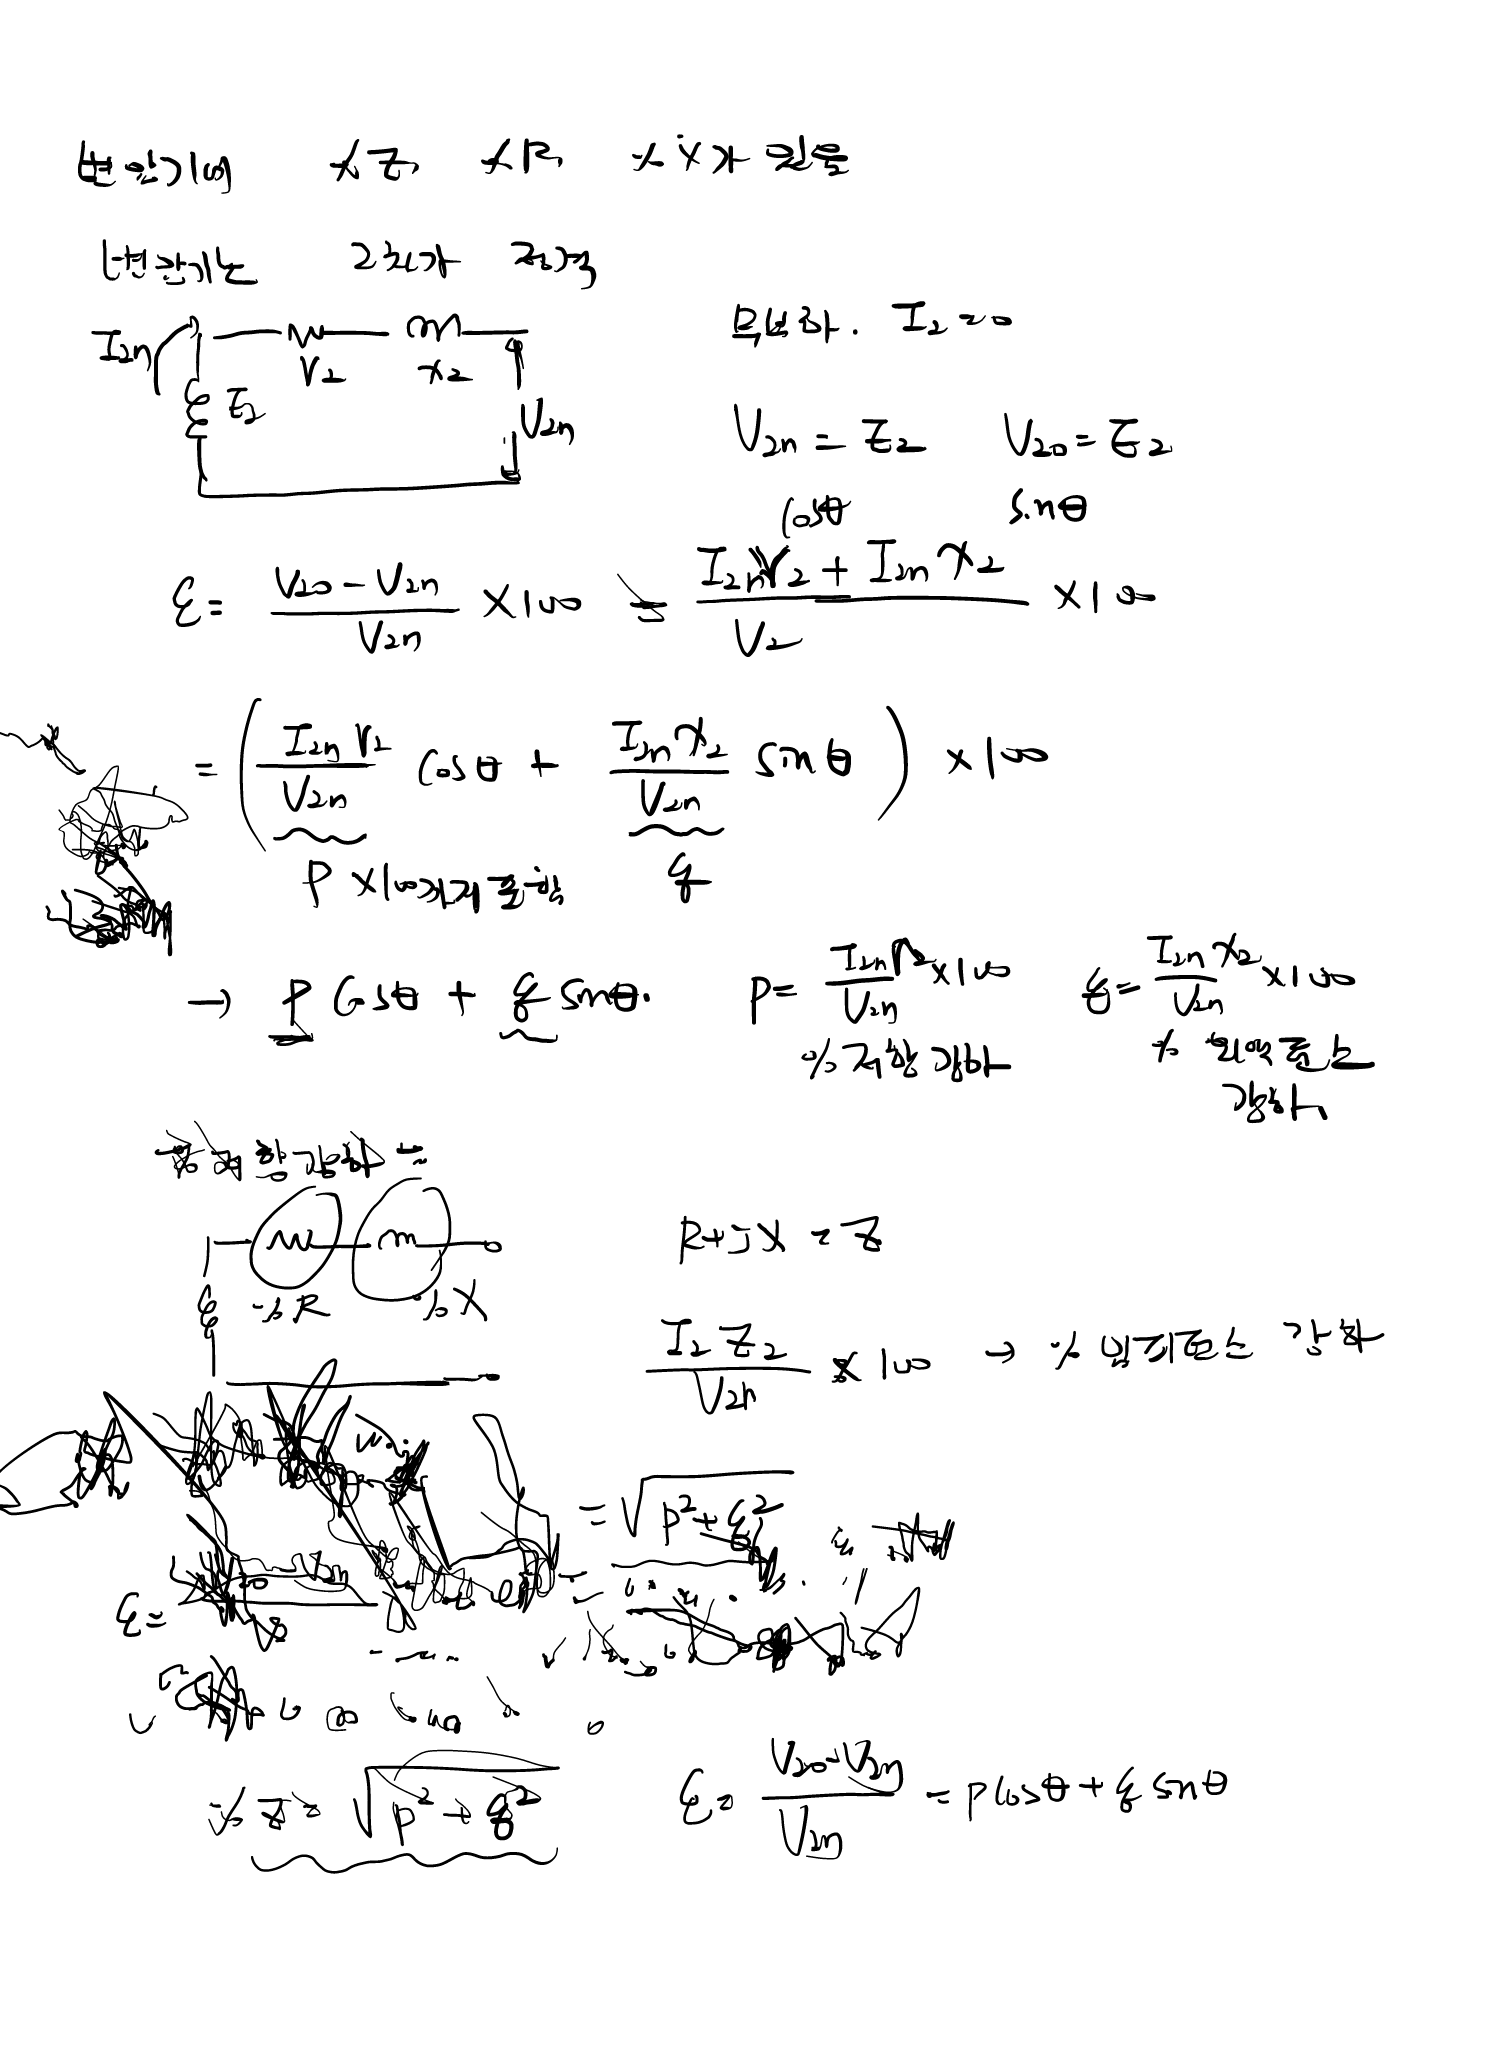 변압기에 %Z, %R, %X가 있음
변압기는 2차가 정격
I₂n r₂ x₂ E₂ V₂n
무부하. I₂=0
V₂n = E₂ V₂₀ = E₂
cosθ sinθ
ε = (V₂₀ - V₂n)/V₂n ×100 ≒ (I₂n r₂ + I₂n x₂)/V₂ ×100
= (I₂n r₂/V₂n cosθ + I₂n x₂/V₂n sinθ) ×100
P ×100까지 포함 q
→ P cosθ + q sinθ. P = I₂n r₂/V₂n ×100 q = I₂n x₂/V₂n ×100
% 저항 강하 % 리액턴스
강하
%R %X
R+jX = Z
I₂ Z₂/V₂n ×100 → % 임피던스 강하
= √(P²+q²)
ε =
%Z = √(P²+q²) ε = (V₂₀-V₂n)/V₂n = P cosθ + q sinθ